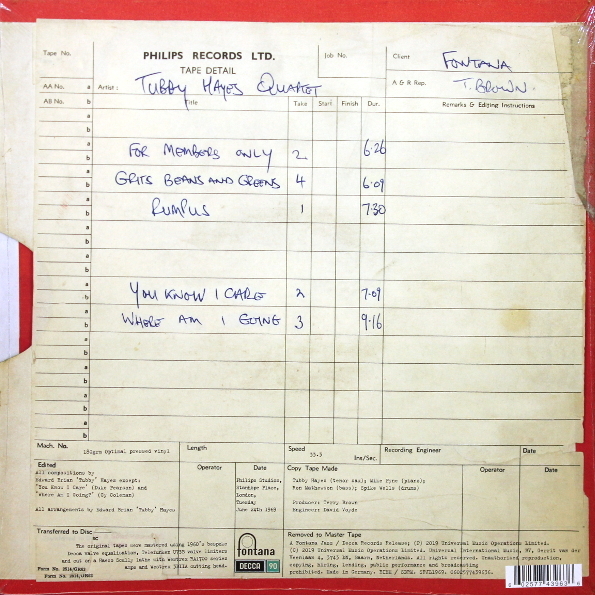 Tape No.
PHILIPS RECORDS LTD.
Job No.
Client
FONTANA
TAPE DETAIL
AA No. a
Artist:
TUBBY HAYES QUARTET
A & R Rep.
T. BROWN
AB No. b
Title
Take
Start
Finish
Dur.
Remarks & Editing Instructions
FOR MEMBERS ONLY 2 6·26
GRITS BEANS AND GREENS 4 6·09
RUMPUS 1 7·30
YOU KNOW I CARE 2 7·09
WHERE AM I GOING 3 9·16
Mach. No.
180grm optimal pressed vinyl
Length
Speed
33.3
Ins/Sec.
Recording Engineer
Date
Edited
Operator
Date
Copy Tape Made
Operator
Date
All compositions by
Edward Brian 'Tubby' Hayes except:
'You Know I Care' (Duke Pearson) and
'Where Am I Going?' (Cy Coleman)
All arrangements by Edward Brian 'Tubby' Hayes
Philips Studios,
Stanhope Place,
London,
Tuesday
June 24th 1969
Tubby Hayes (tenor sax); Mike Pyne (piano);
Ron Mathewson (bass); Spike Wells (drums)
Producer: Terry Brown
Engineer: David Voyde
Transferred to Disc
The original tapes were mastered using 1960's bespoke
Decca valve equalisation,
and cut on a
fontana
DECCA 90
Removed to Master Tape
A Fontana Jazz / Decca Records Release; (P) 2019 Universal Music Operations Limited.
(C) 2019 Universal Music Operations Limited. Universal International Music, BV, Gerrit van der
Netherlands. All rights reserved. Unauthorised reproduction,
copying, hiring, lending, public performance and broadcasting
prohibited. Made in Germany.